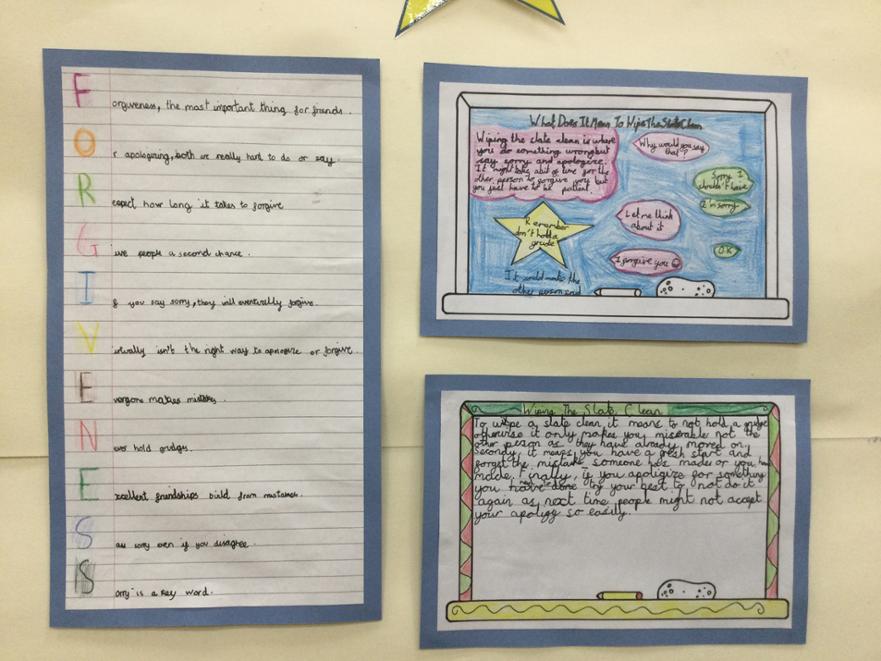 Forgiveness, the most important thing for friends.
Or apologising, both are really hard to do or say.
Respect how long it takes to forgive
Give people a second chance.
If you say sorry, they will eventually forgive.
Virtually isn't the right way to apologize or forgive.
Everyone makes mistakes.
Never hold grudges.
Excellent friendships build from mistakes.
Say sorry even if you disagree.
Sorry is a key word.
What Does It Mean To Wipe The Slate Clean
Wiping the slate clean is where
you do something wrong but
say sorry and apologize.
It might take a bit of time for the
other person to forgive you but
you just have to be patient.
Why would you say
that?
Sorry I
shouldn't have
I'm sorry
Let me think
about it
OK
I forgive you
Remember
don't hold a
grude
It would make the
other person sad
Wiping The Slate Clean
To wipe a slate clean it means to not hold a grudge
otherwise it only makes you miserable not the
other person as they have already moved on.
Secondly, it means you have a fresh start and
forget the mistake someone has made or you have
made. Finally, if you apologize for something
you have done try your best to not do it
again as next time people might not accept
your apology so easily.